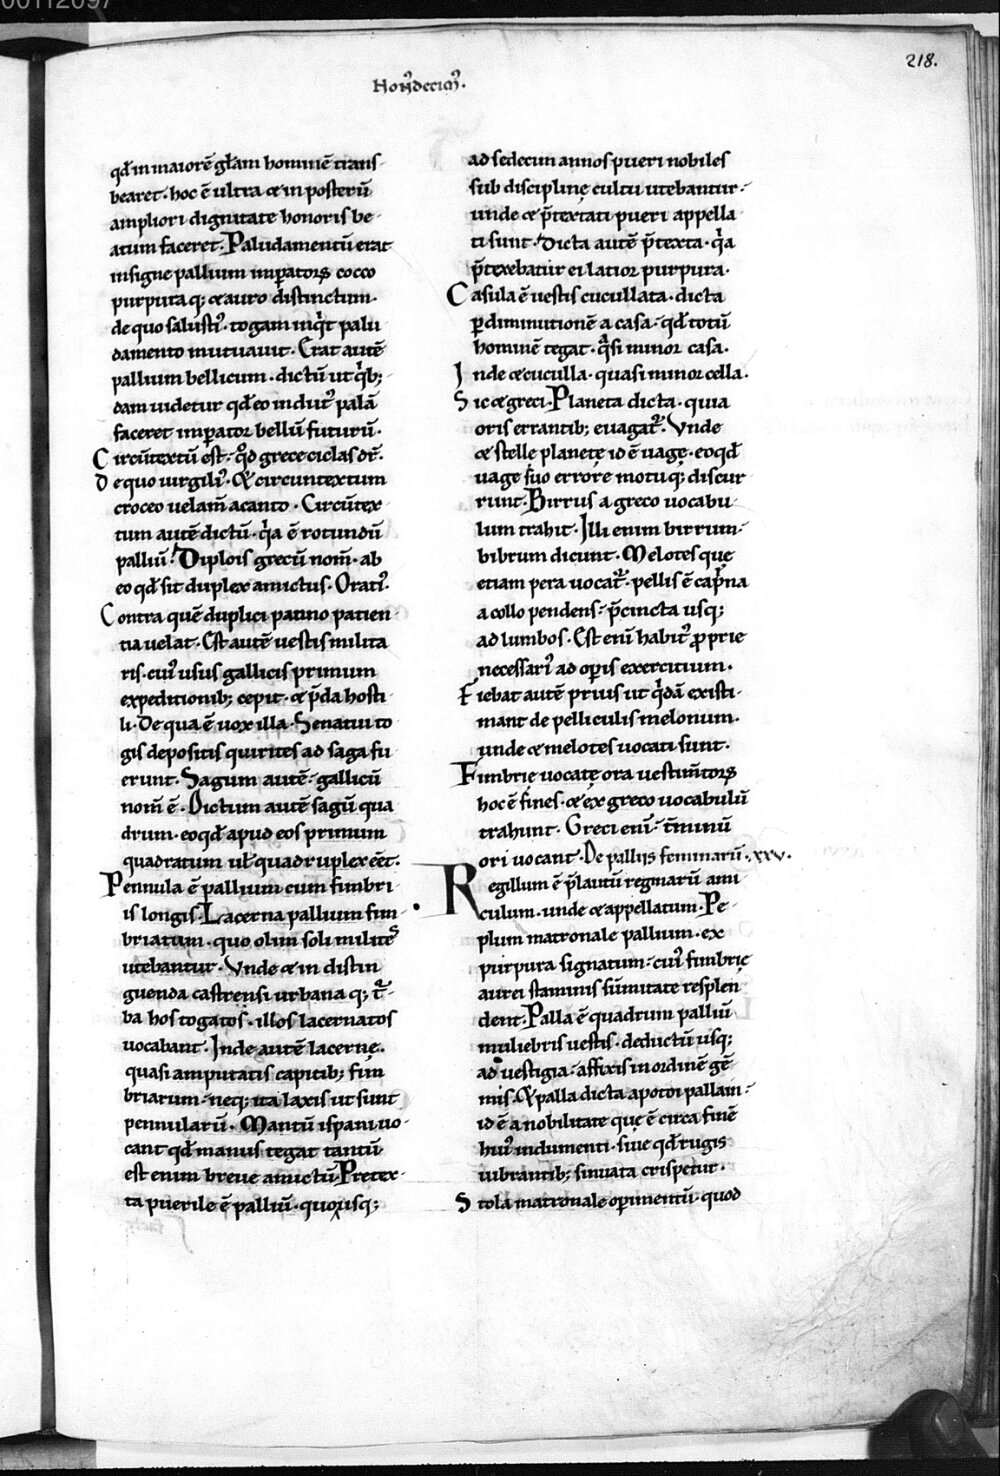 00112097
218.
qđ in maiorē głam hominē trans
bearet· hoc ē ultra & in posterū
ampliori dignitate honoris be
atum faceret. Paludamentū erat
insigne pallium imperatorꝝ cocco
purpuraq; & auro distinctum·
de quo salusti᾿· togam inqͥt palu
damento mutauit· Erat autē
pallium bellicum· dictū ut qͥb;
dam uidetur qđ eo indut᾿ palā
faceret imperator bellū futurū·
Circūtextū est· qđ grece ciclas dr̄·
De quo uirgili᾿· Et circumtextum
croceo uelam̄ acanto· Circūtex
tum autē dictū· qͥa ē rotundū
palliū· Diplois grecū nom̄· ab
eo qđ sit duplex amictus· Orati᾿·
Contra quē duplici panno patien
tia uelat· Est autē uestis milita
ris· cui᾿ usus gallicis primum
expeditionib; cepit· & p̄da hosti
li· De qua ē uox illa· Senatui to
gis depositis quirites ad saga fu
erunt· Sagum autē gallicū
nom̄ ē· Dictum autē sagū qua
drum· eo qđ apud eos primum
quadratum ul̄ quadruplex eēt·
Pennula ē pallium cum fimbri
is longis· Lacerna pallium fim
briatum· quo olim soli milites
utebantur· Vnde & in distin
guenda castrensi urbana q; tr̄
ba hos togatos· illos lacernatos
uocabant· Inde autē lacerne·
quasi amputatis capitib; fim
briarum· neq; ita laxis ut sunt
pennularū· Mantū ispani uo
cant qđ manus tegat tantū
est enim breue amictū· Pretex
ta puerile ē palliū· quo usq;
ad sedecim annos pueri nobiles
sub discipline cultu utebantur·
unde & p̄textati pueri appella
ti sunt· Dicta autē p̄texta· qͥa
p̄texebatur ei latior purpura·
Casula ē uestis cucullata· dicta
ꝑ diminutionē a casa· qđ totū
hominē tegat· qͣsi minor casa·
Inde & cuculla· quasi minor cella·
Sic & greci· Planeta dicta· quia
oris errantib; euagat᾿· Vnde
& stelle planetę id ē uage· eo qđ
uage suo errore motuq; discur
runt· Birrus a greco uocabu
lum trahit· Illi enim birrum
bibrum dicunt· Melotes quę
etiam pera uocat᾿· pellis ē capͥna
a collo pendens· p̄cincta usq;
ad lumbos· Est enī habit᾿ proprie
necessari᾿ ad operis exercitium·
Fiebat autē prius ut qͥdā existi
mant de pelliculis melonum·
unde & melotes uocati sunt·
Fimbrie uocatę ora uestim̄torꝝ
hoc ē fines· & ex greco uocabulū
trahunt· Greci enī t̄minū
ori uocant· De pallijs feminarū· xxv·
Regillum ē p̄latū reginarū ami
culum· unde & appellatum· Pe
plum matronale pallium· ex
purpura signatum· cui᾿ fimbrię
aurei staminis sūmitate resplen
dent· Palla ē quadrum palliū
muliebris uestis· deductū usq;
ad uestigia· affixis in ordinē gē
mis· Et palla dicta apo toi pallain·
id ē a nobilitate quę ē circa finē
hui᾿ indumenti· siue qđ rugis
uibrantib; sinuata crispetur·
Stola matronale operimentū· quod